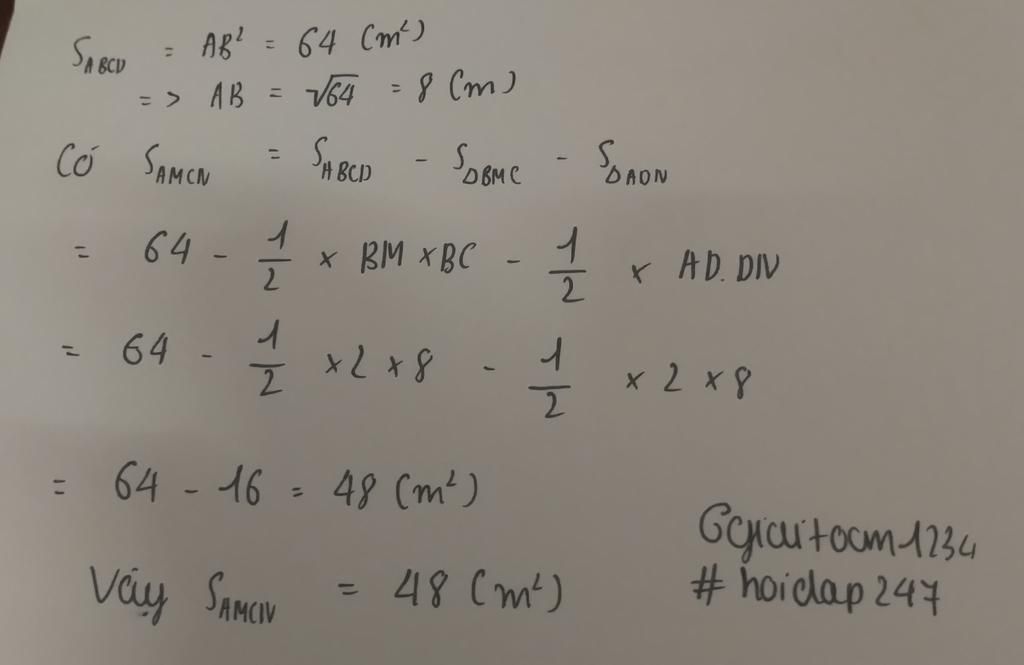 S_ABCD = AB² = 64 (m²)
=> AB = √64 = 8 (m)
Có S_AMCN = S_ABCD - S_ΔBMC - S_ΔADN
= 64 - 1/2 × BM × BC - 1/2 × AD.DN
= 64 - 1/2 × 2 × 8 - 1/2 × 2 × 8
= 64 - 16 = 48 (m²)
Vậy S_AMCN = 48 (m²)
#hoidap247